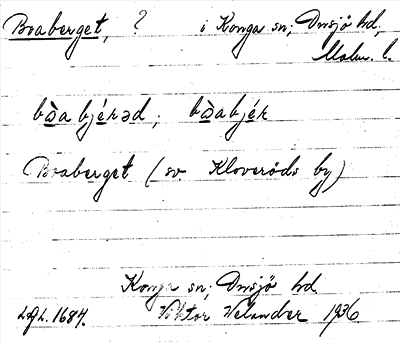 Boaberget, ? i Konga sn; Onsjö hd,
Malm. l.
bɷ̀a bjérəd; bɷ̀abjér
Boaberget (sv Klöveröds by)
Konga sn; Onsjö hd
LAL. 1684. Viktor Velander 1936